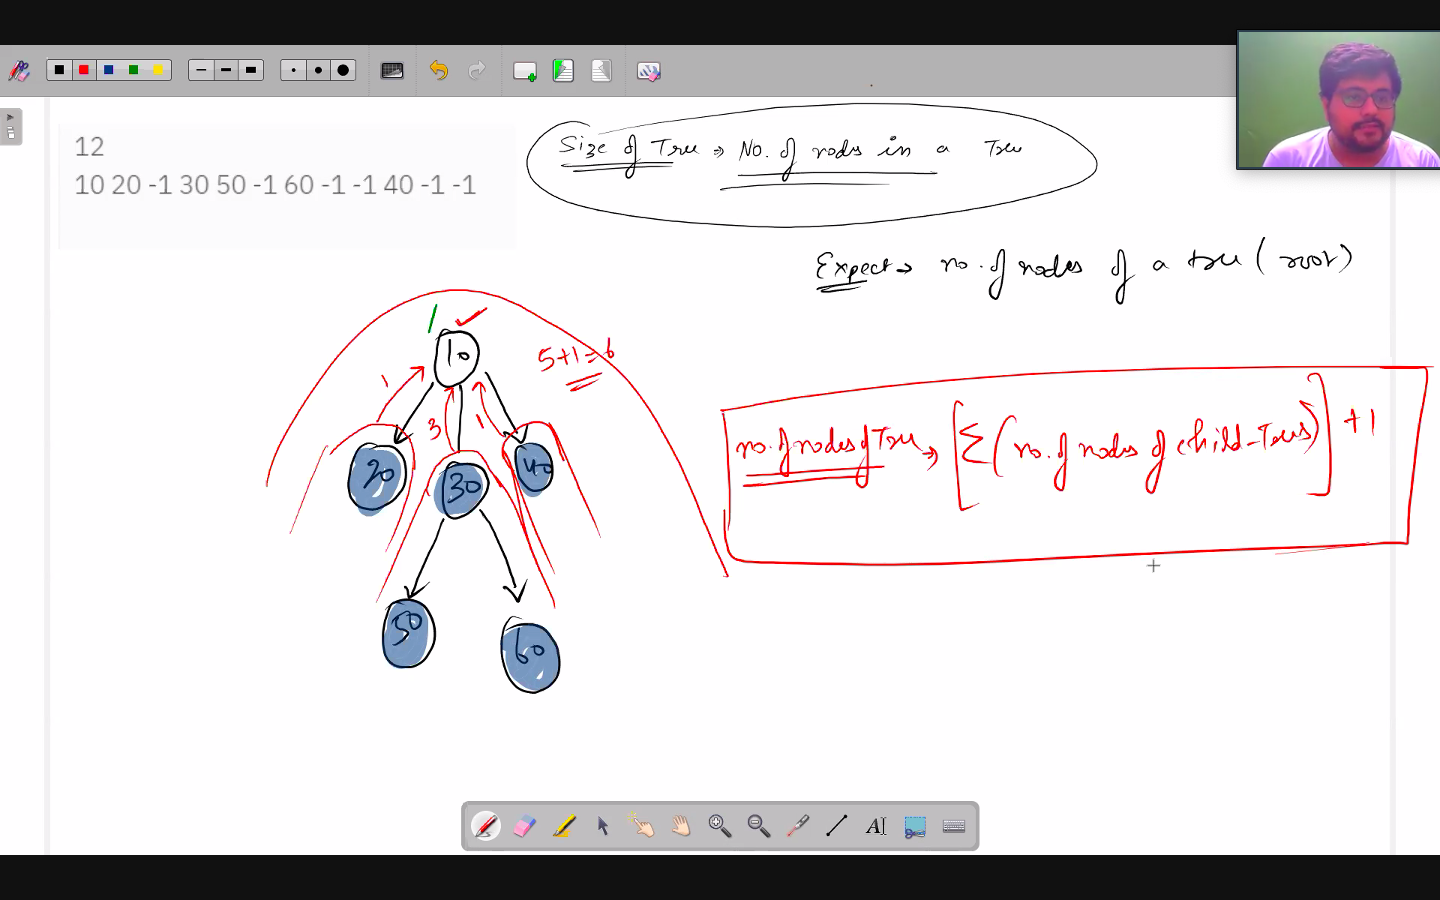 12
10 20 -1 30 50 -1 60 -1 -1 40 -1 -1
Size of Tree → No. of nodes in a Tree
Expect → no. of nodes of a tree (root)
1
10
5+1=6
1
3
1
20
30
40
50
60
no. of nodes of Tree → [Σ(no. of nodes of child-Trees)] +1
AI